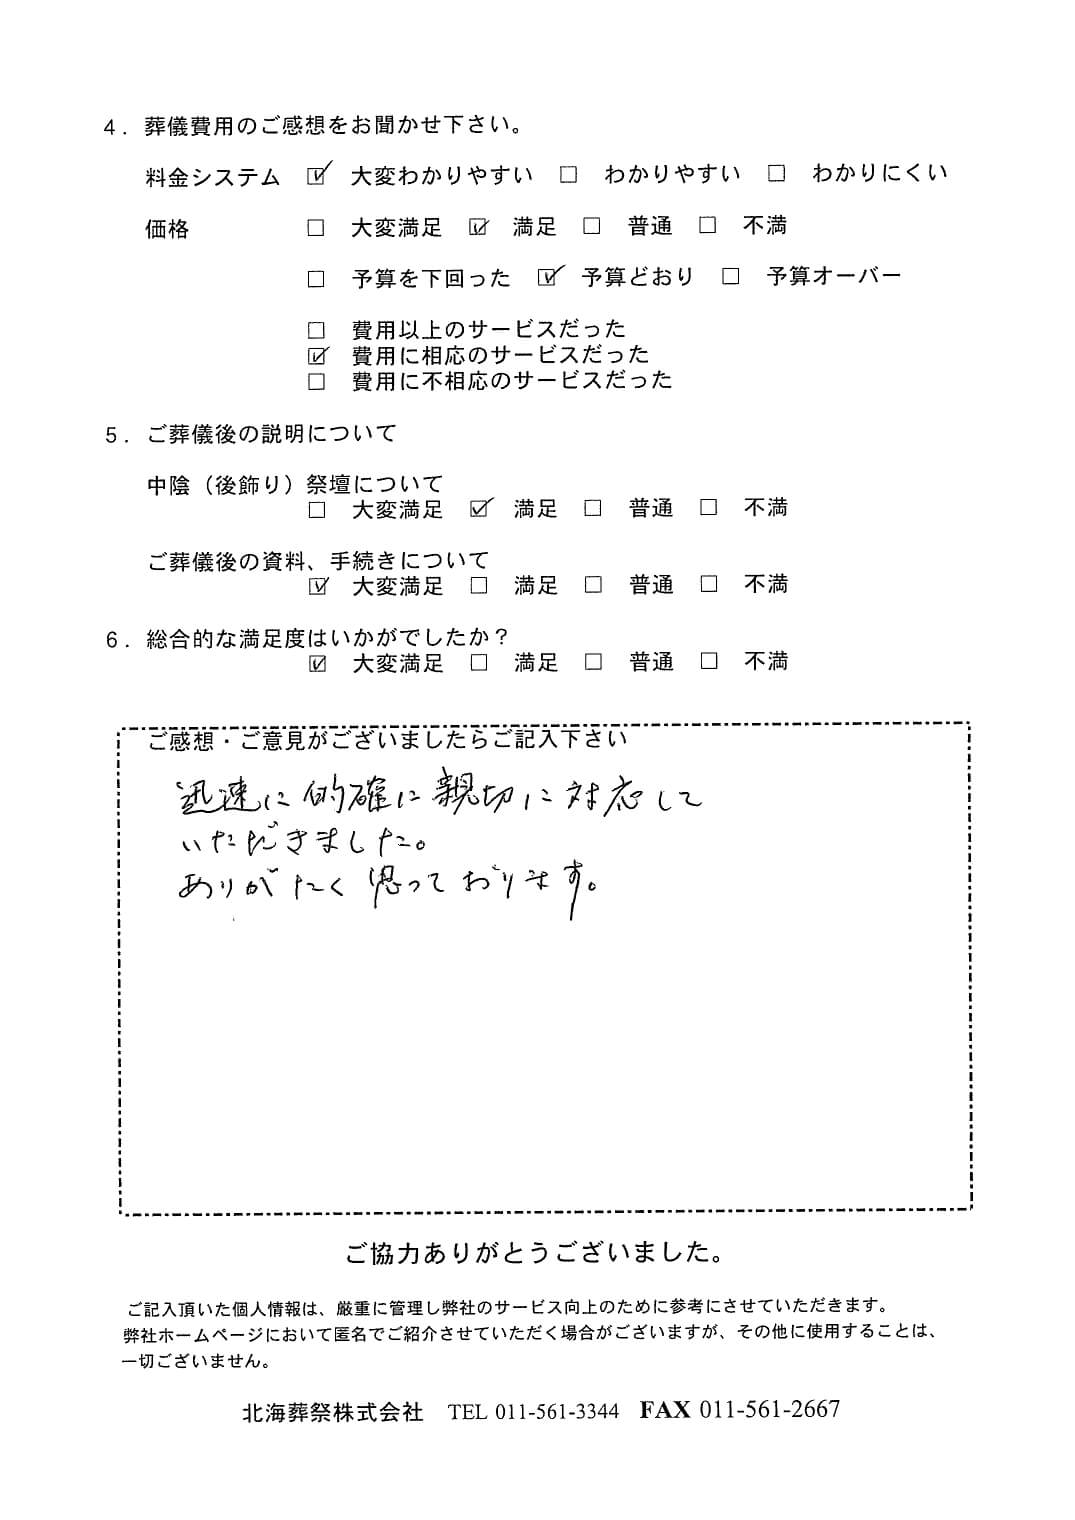 4．葬儀費用のご感想をお聞かせ下さい。
料金システム ☑ 大変わかりやすい □ わかりやすい □ わかりにくい
価格 □ 大変満足 ☑ 満足 □ 普通 □ 不満
□ 予算を下回った ☑ 予算どおり □ 予算オーバー
□ 費用以上のサービスだった
☑ 費用に相応のサービスだった
□ 費用に不相応のサービスだった
5．ご葬儀後の説明について
中陰（後飾り）祭壇について
□ 大変満足 ☑ 満足 □ 普通 □ 不満
ご葬儀後の資料、手続きについて
☑ 大変満足 □ 満足 □ 普通 □ 不満
6．総合的な満足度はいかがでしたか？
☑ 大変満足 □ 満足 □ 普通 □ 不満
ご感想・ご意見がございましたらご記入下さい
迅速に的確に親切に対応して
いただきました。
ありがたく思っております。
ご協力ありがとうございました。
ご記入頂いた個人情報は、厳重に管理し弊社のサービス向上のために参考にさせていただきます。
弊社ホームページにおいて匿名でご紹介させていただく場合がございますが、その他に使用することは、
一切ございません。
北海葬祭株式会社 TEL 011-561-3344 FAX 011-561-2667